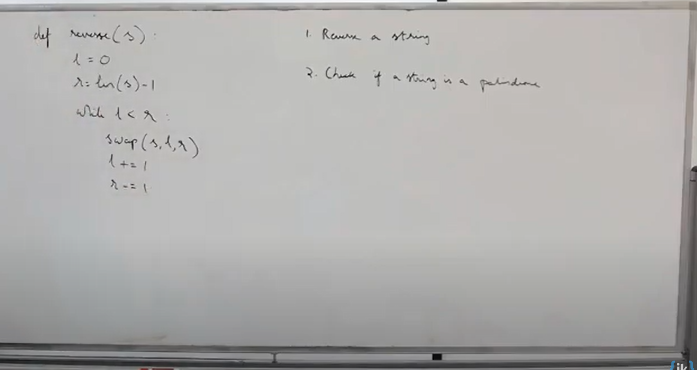 def reverse(s):
l = 0
r = len(s)-1
while l < r:
swap(s,l,r)
l += 1
r -= 1
1. Reverse a string
2. Check if a string is a palindrome
ik